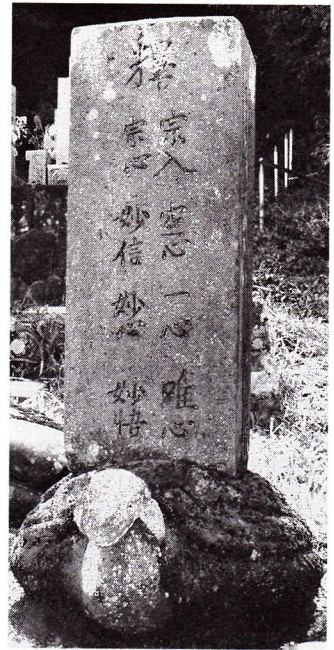 釋
宗入 心 一心 唯心
宗心 妙信 妙心 妙悟